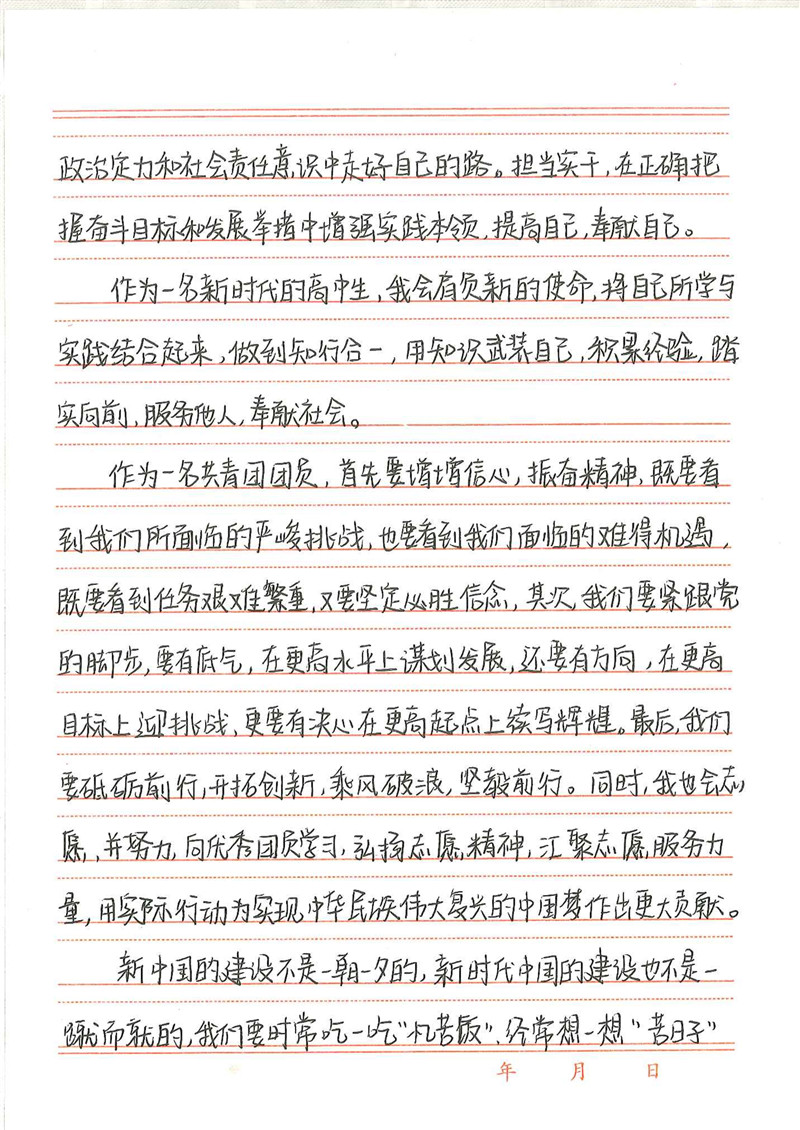 政治定力和社会责任意识中走好自己的路。担当实干，在正确把
握奋斗目标和发展举措中增强实践本领，提高自己，奉献自己。
作为一名新时代的高中生，我会肩负新的使命，将自己所学与
实践结合起来，做到知行合一，用知识武装自己，积累经验，踏
实向前，服务他人，奉献社会。
作为一名共青团团员，首先要增增信心，振奋精神，既要看
到我们所面临的严峻挑战，也要看到我们面临的难得机遇，
既要看到任务艰难繁重，又要坚定必胜信念，其次，我们要紧跟党
的脚步，要有底气，在更高水平上谋划发展，还要有方向，在更高
目标上迎挑战，更要有决心在更高起点上续写辉煌。最后，我们
要砥砺前行，开拓创新，乘风破浪，坚毅前行。同时，我也会志
愿，并努力，向优秀团员学习，弘扬志愿精神，汇聚志愿服务力
量，用实际行动为实现中华民族伟大复兴的中国梦作出更大贡献。
新中国的建设不是一朝一夕的，新时代中国的建设也不是一
蹴而就的，我们要时常吃一吃“忆苦饭”、经常想一想“苦日子”
年 月 日